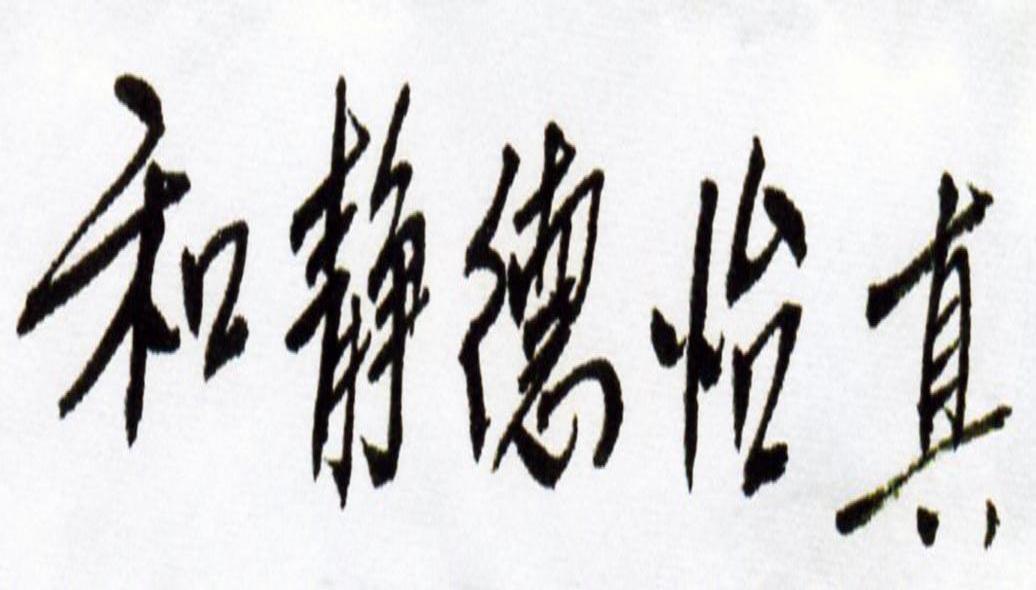 和静德怡真